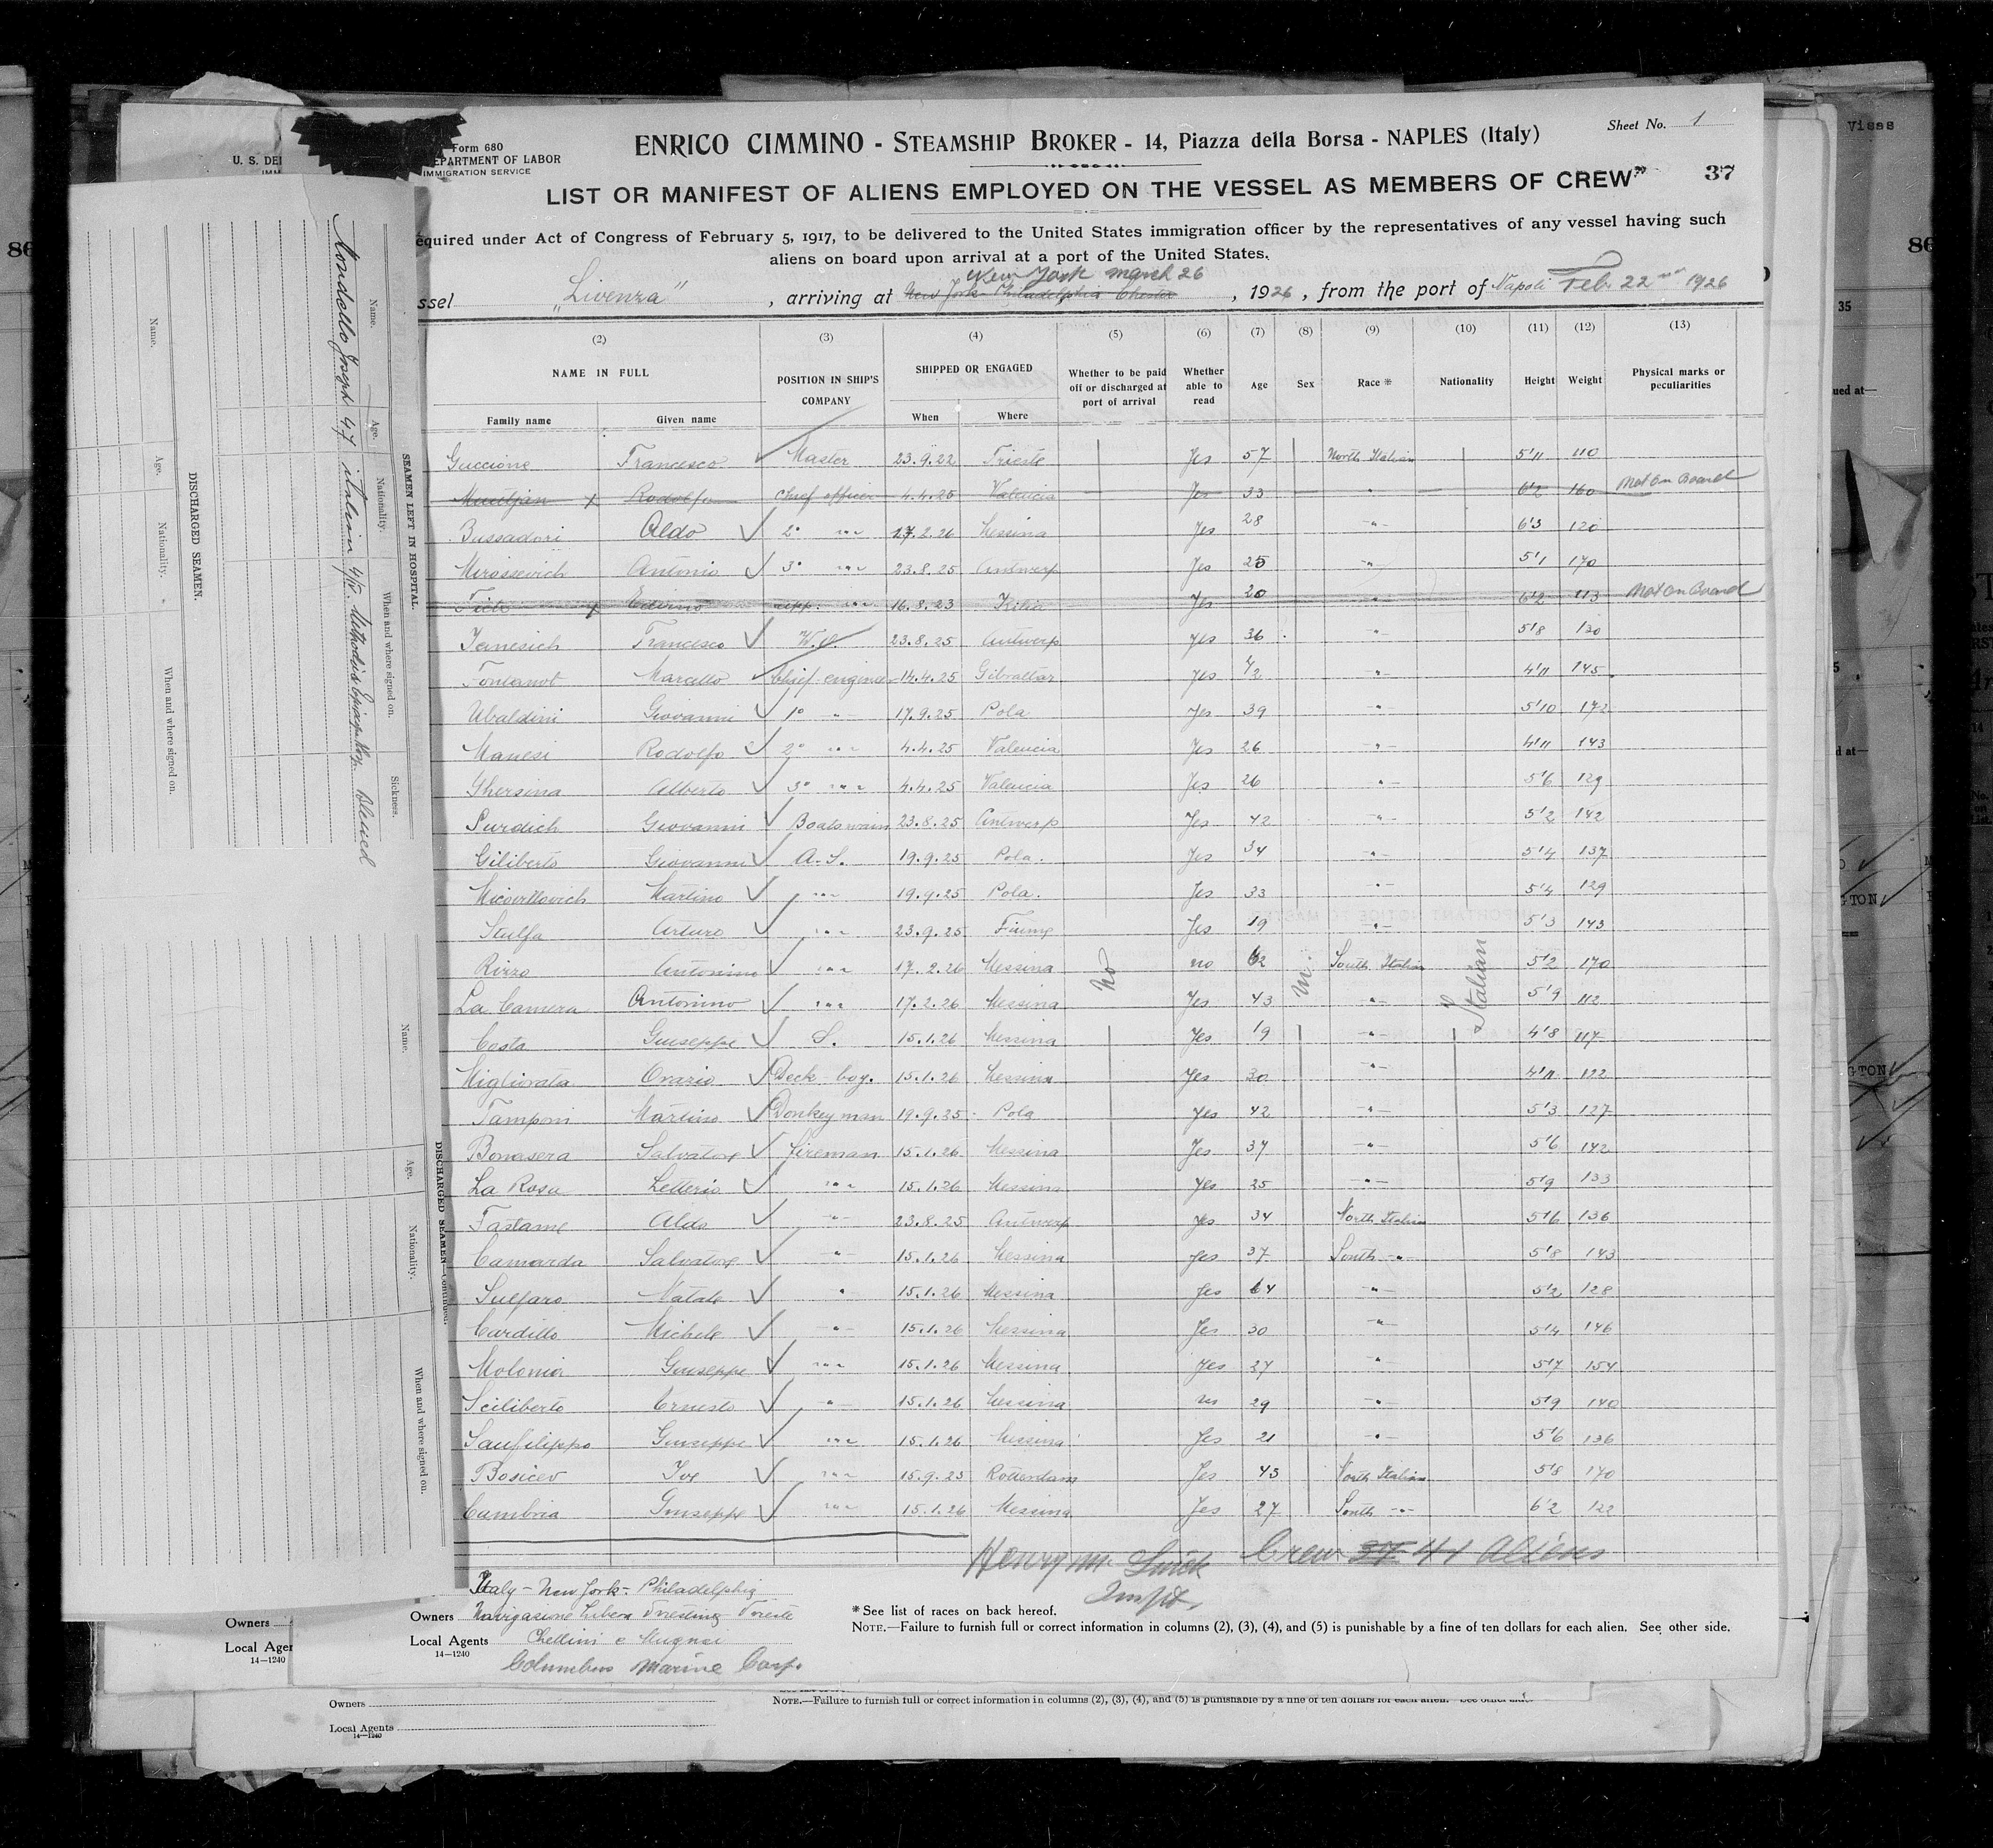 Sheet No. 1
Form 680
U. S. DE
DEPARTMENT OF LABOR
IMMIGRATION SERVICE
ENRICO CIMMINO - STEAMSHIP BROKER - 14, Piazza della Borsa - NAPLES (Italy)
37
LIST OR MANIFEST OF ALIENS EMPLOYED ON THE VESSEL AS MEMBERS OF CREW
equired under Act of Congress of February 5, 1917, to be delivered to the United States immigration officer by the representatives of any vessel having such
aliens on board upon arrival at a port of the United States.
New York March 26
ssel "Livenza", arriving at New York-Philadelphia Chester, 1926, from the port of Napoli Feb. 22nd 1926
(2) (3) (4) (5) (6) (7) (8) (9) (10) (11) (12) (13)
NAME IN FULL POSITION IN SHIP'S COMPANY SHIPPED OR ENGAGED Whether to be paid off or discharged at port of arrival Whether able to read Age Sex Race * Nationality Height Weight Physical marks or peculiarities
Family name Given name When Where
Guccione Francesco Master 23.9.22 Trieste Yes 57 North Italian 5'11 110
Rodolfo Chief officer 4.4.25 Valencia Yes 33 -"- 6'2 160 Not on Board
Bussadori Aldo 2° -"- 17.2.26 Messina Yes 28 -"- 6'3 120
Mirossevich Antonio 3° -"- 23.8.25 Antwerp Yes 25 -"- 5'1 170
Edvino app. -"- 16.8.23 Kilia Yes 20 -"- 6'2 113 Not on Board
Janesich Francesco W.O. 23.8.25 Antwerp Yes 36 -"- 5'8 130
Fontanot Marcello Chief engineer 14.4.25 Gibraltar Yes 42 -"- 4'11 145
Ubaldini Giovanni 1° -"- 17.9.25 Pola Yes 39 -"- 5'10 172
Manesi Rodolfo 2° -"- 4.4.25 Valencia Yes 26 -"- 4'11 143
Ghersina Alberto 3° -"- 4.4.25 Valencia Yes 26 -"- 5'6 129
Surdich Giovanni Boatswain 23.8.25 Antwerp Yes 42 -"- 5'2 142
Giliberto Giovanni A.S. 19.9.25 Pola. Yes 34 -"- 5'4 137
Martino -"- 19.9.25 Pola. Yes 33 -"- 5'4 129
Stulfa Arturo -"- 23.9.25 Fiume Yes 19 -"- 5'3 143
Rizzo Antonino -"- 17.2.26 Messina No no 62 M. South Italian Italian 5'2 170
La Camera Antonino -"- 17.2.26 Messina Yes 43 -"- 5'9 112
Costa Giuseppe S. 15.1.26 Messina Yes 19 -"- 4'8 117
Migliorata Orazio Deck-boy. 15.1.26 Messina Yes 30 -"- 4'11 122
Tamponi Martino Donkeyman 19.9.25 Pola Yes 42 -"- 5'3 127
Bonasera Salvatore fireman 15.1.26 Messina Yes 37 -"- 5'6 142
La Rosa Letterio -"- 15.1.26 Messina Yes 25 -"- 5'9 133
Aldo -"- 23.8.25 Antwerp Yes 34 North Italian 5'6 136
Camarda Salvatore -"- 15.1.26 Messina Yes 37 South -"- 5'8 143
Sulfaro Natale " 15.1.26 Messina Yes 64 -"- 5'2 128
Cardillo Michele -"- 15.1.26 Messina Yes 30 -"- 5'4 146
Molonia Giuseppe -"- 15.1.26 Messina Yes 27 -"- 5'7 154
Sciliberto Ernesto -"- 15.1.26 Messina 29 -"- 5'9 140
Sanfilippo Giuseppe -"- 15.1.26 Messina Yes 21 -"- 5'6 136
Bosicev Ive -"- 15.9.25 Rotterdam Yes 43 North Italian 5'8 170
Cambria Giuseppe -"- 15.1.26 Messina Yes 27 South -"- 6'2 122
Henry M. Crew 37 41 Aliens
Insptr.
Italy - New York - Philadelphia
Owners Navigazione Libera Triestina Trieste
Local Agents Chellini e Mugnai
14—1240
Columbus Marine Corp.
* See list of races on back hereof.
NOTE.—Failure to furnish full or correct information in columns (2), (3), (4), and (5) is punishable by a fine of ten dollars for each alien. See other side.
SEAMEN LEFT IN HOSPITAL.
Name. Age. Nationality. When and where signed on. Sickness.
Mondello Joseph 47 italian Methodist Episcop. Hosp.
DISCHARGED SEAMEN.
Name. Age. Nationality. When and where signed on.
DISCHARGED SEAMEN—Continued.
Name. Age. Nationality. When and where signed on.
Owners
Local Agen
14—1240
Owners
Local Agents
14—1240
NOTE.—Failure to furnish full or correct information in columns (2), (3), (4), and (5) is punishable by a fine of ten dollars for each alien. See other side.
Visas
86
86
35
ued at—
d at—
GTON
GTON